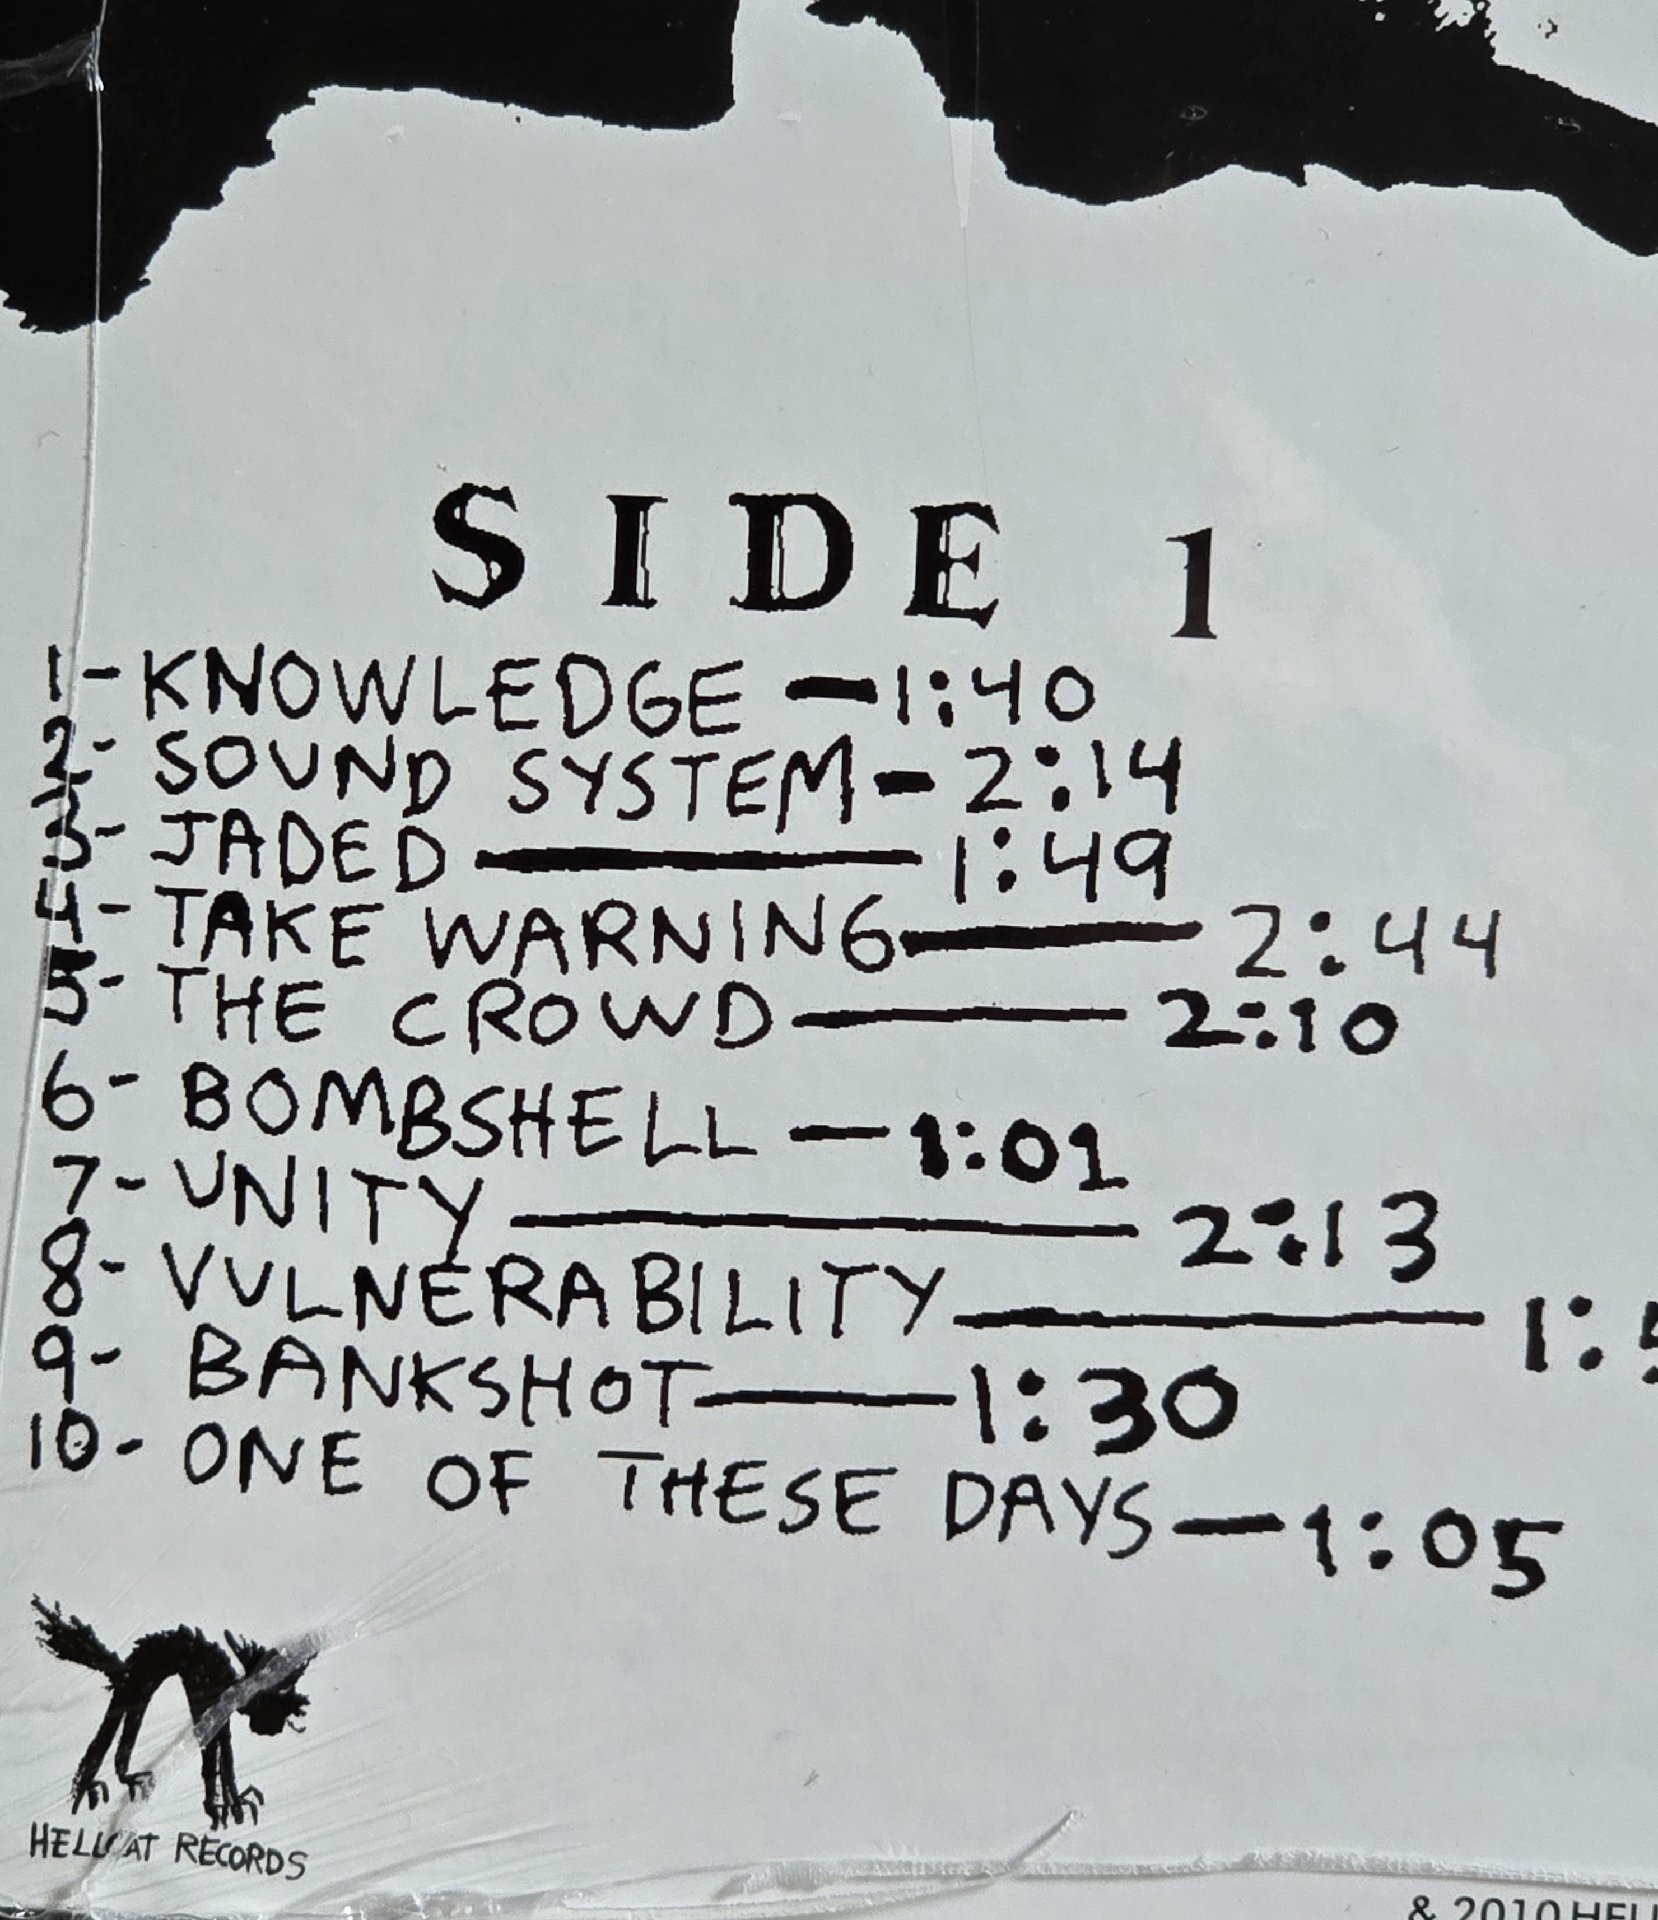 SIDE 1
1- KNOWLEDGE — 1:40
2- SOUND SYSTEM - 2:14
3- JADED — 1:49
4- TAKE WARNING — 2:44
5- THE CROWD — 2:10
6- BOMBSHELL — 1:01
7- UNITY — 2:13
8- VULNERABILITY —
9- BANKSHOT — 1:30
10- ONE OF THESE DAYS — 1:05
HELLCAT RECORDS
& 2010